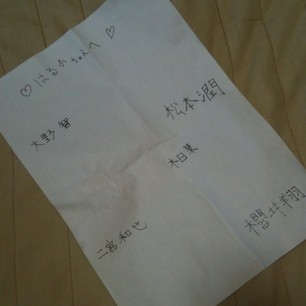 ♡はるかちゃんへ♡
大野智
松本潤
相葉
二宮和也
櫻井翔